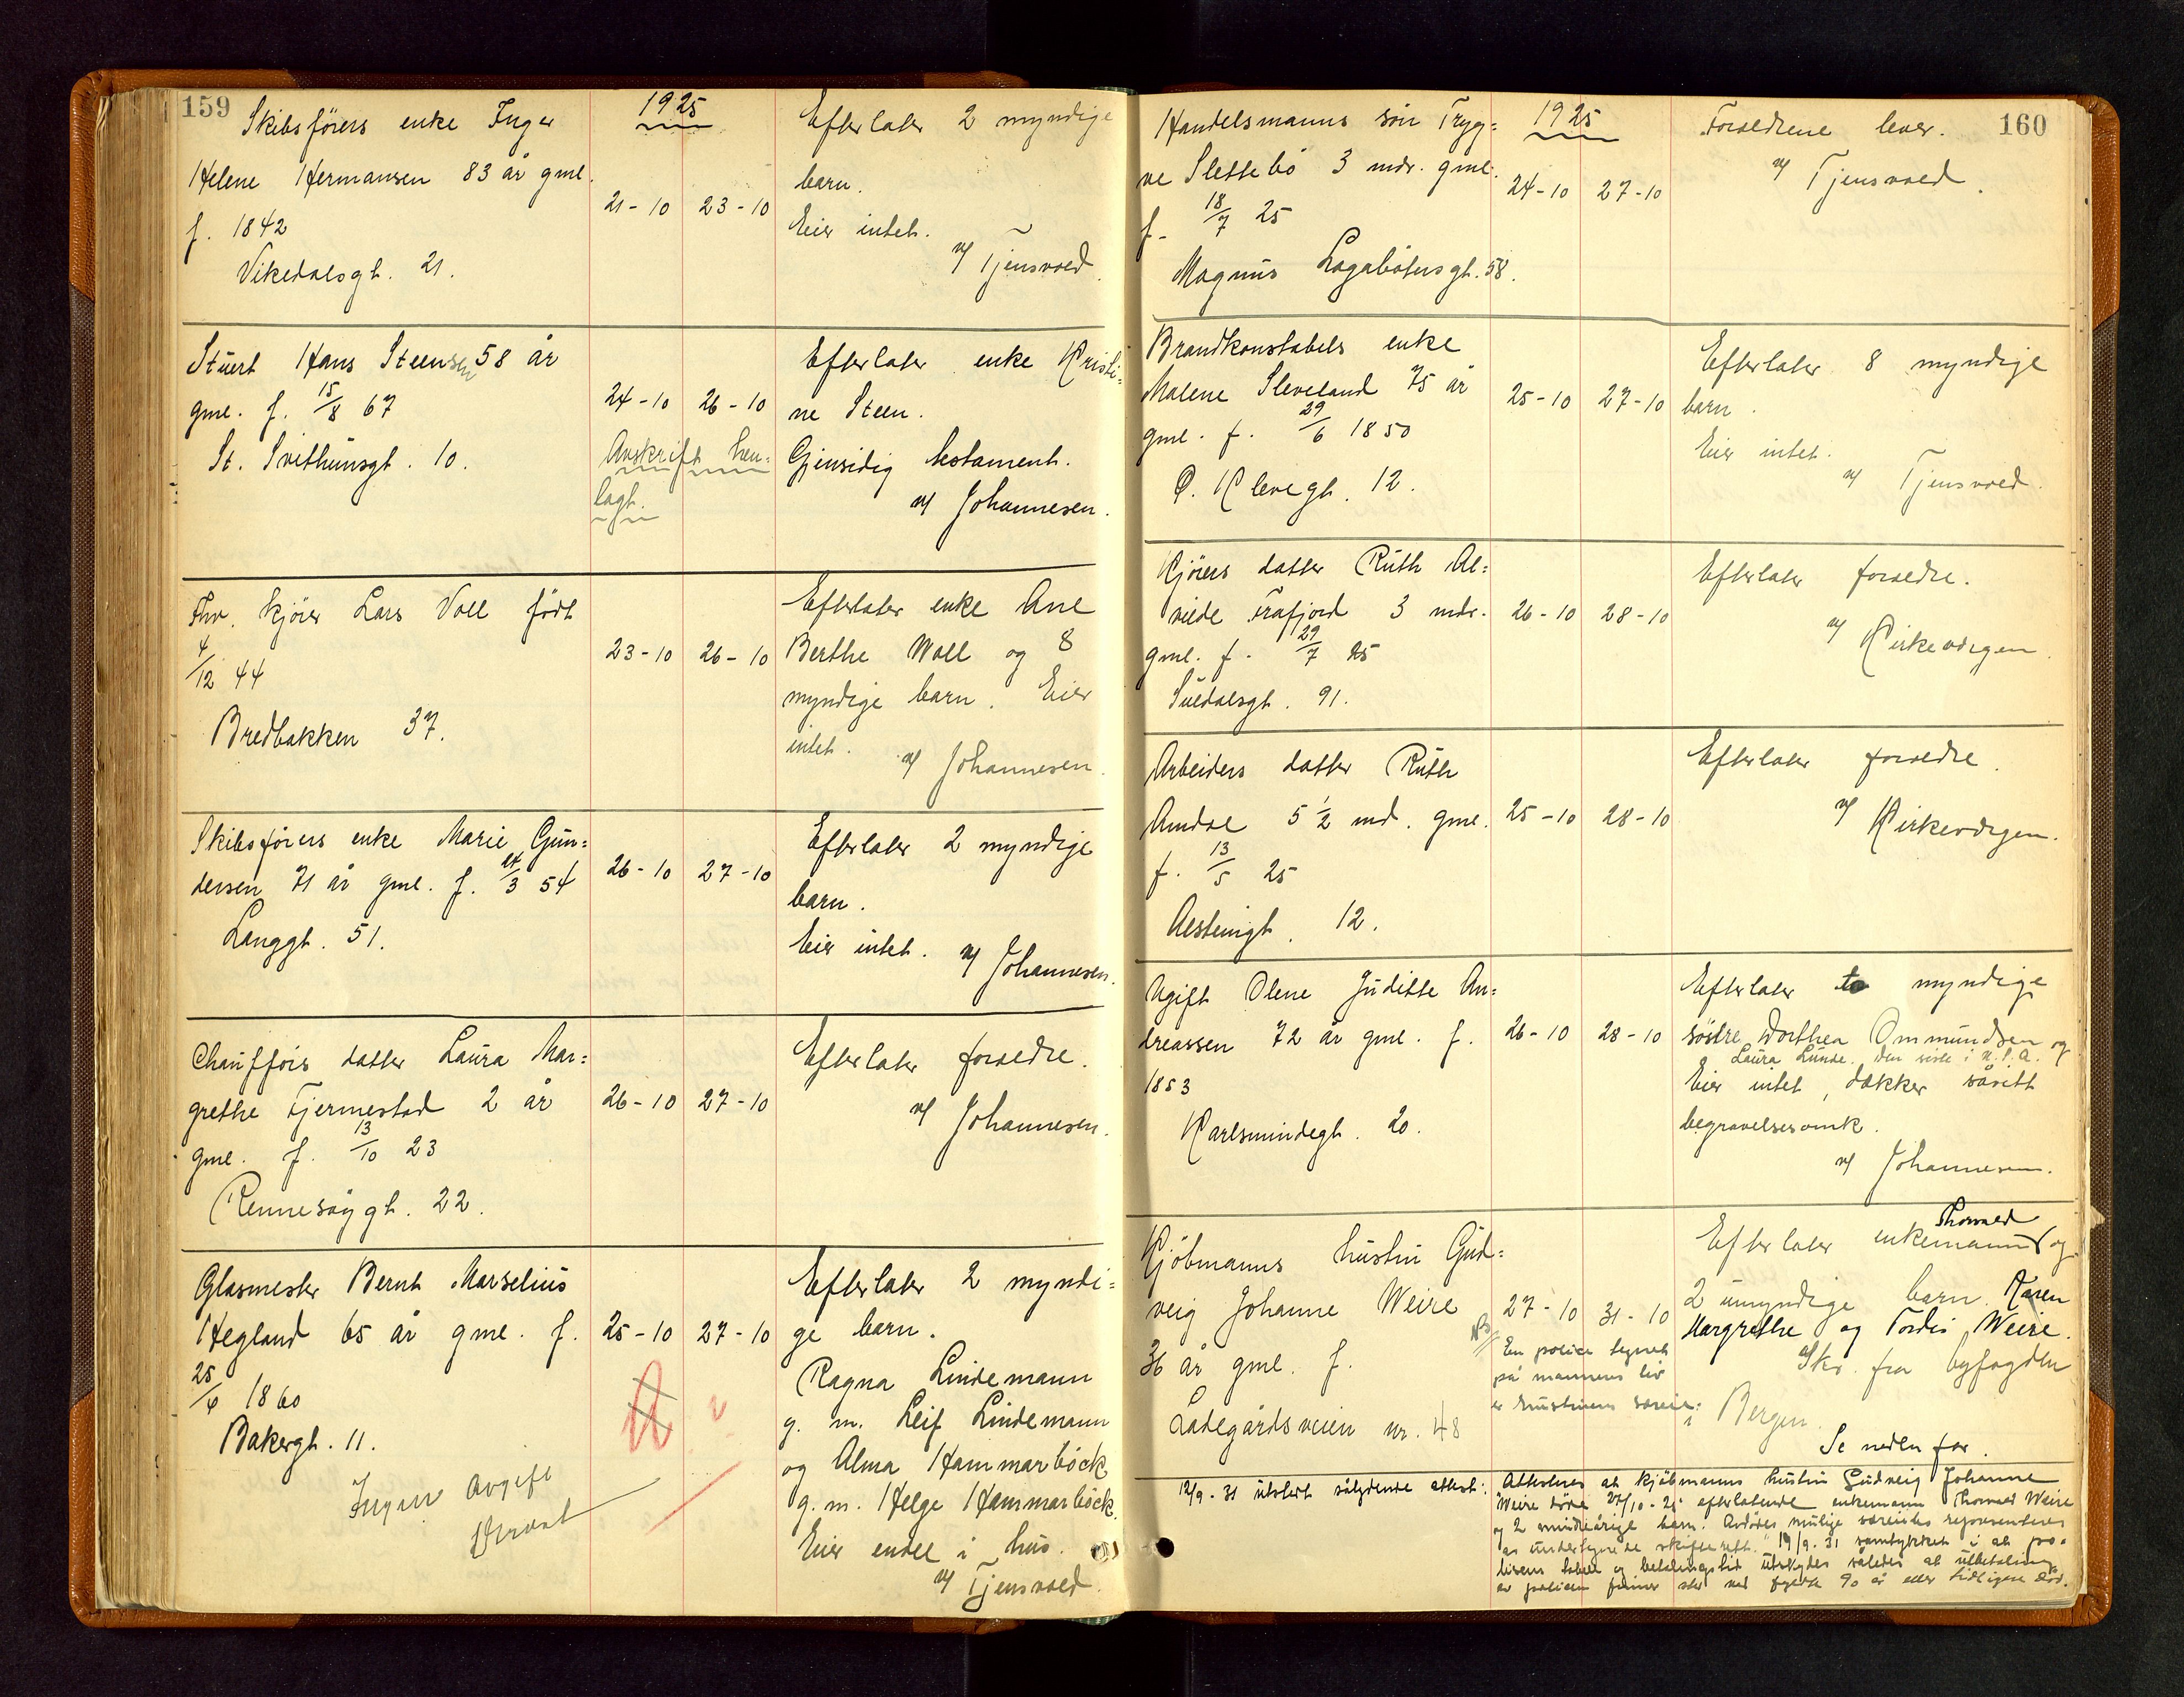 159
Skibsförers enke Inger
Helene Hermansen 83 år gml.
f. 1842
Vikedalsgt. 21.
1925
21-10 23-10
Efterlater 2 myndige
barn.
Eier intet.
v/ Tjensvold.
Stuert Hans Steensen 58 år
gml. f. 15/8 67
St. Svithunsgt. 10.
24-10 26-10
Avskrift hen-
lagt.
Efterlater enke Kristi-
ne Steen.
Gjensidig testament.
v/ Johannesen.
Fhv. kjörer Lars Voll födt
4/12 44
Bredbakken 37.
23-10 26-10
Efterlater enke Ane
Berthe Woll og 8
myndige barn. Eier
intet. v/ Johannesen.
Skibsförers enke Marie Gun-
dersen 71 år gml. f. 3 54
Langgt. 51.
26-10 27-10
Efterlater 2 myndige
barn.
Eier intet. v/ Johannesen.
Chaufförs datter Laura Mar-
grethe Fjermestad 2 år
gml. f. 13/10 23
Rennesöygt. 22.
26-10 27-10
Efterlater forældre.
v/ Johannesen.
Glasmester Bernt Marselius
Hegland 65 år gml. f.
25/6 1860
Bakergt. 11.
Ingen avgift
25-10 27-10
Efterlater 2 myndi-
ge barn.
Ragna Lindemann
g. m. Leif Lindemann
og Alma Hammarböck
g. m. Helge Hammarböck.
Eier endel i hus.
v/ Tjensvold.
160
Handelsmanns sön Tryg-
ve Slettebö 3 mdr. gml.
f. 18/7 25
Magnus Lagabötersgt. 58.
1925
24-10 27-10
Forældrene lever.
v/ Tjensvold.
Brandkonstabels enke
Malene Sleveland 75 år
gml. f. 29/6 1850
P. Klevegt. 12.
25-10 27-10
Efterlater 8 myndige
barn.
Eier intet.
v/ Tjensvold.
Kjörers datter Ruth Al-
vilde Frafjord 3 mdr.
gml. f. 29/7 25
Suldalsgt. 91.
26-10 28-10
Efterlater forældre.
v/ Kirkevergen.
Arbeiders datter Ruth
Amdal 5 1/2 md. gml.
f. 13/5 25
Alsteinsgt. 12.
25-10 28-10
Efterlater forældre.
v/ Kirkevergen.
Ugift Olene Juditte An-
dreassen 72 år gml. f.
1853
Karlsmindegt. 20.
26-10 28-10
Efterlater to myndige
söstre Dorthea Ommundsen og
Laura Lunde. Den siste i U.S.A.
Eier intet, dækker såvitt
begravelsesomk.
v/ Johannesen.
Kjöbmanns hustru Gud-
veig Johanne Weire
36 år gml. f.
Ladegårdsveien nr. 48
27-10 31-10
NB
En police tegnet
på mannens liv
er hustruens særeie.
Thorvald
Efterlater enkemann og
2 umyndige barn. Karen
Margrethe og Tordis Weire.
Skr. fra byfogden
i Bergen.
Se nedenfor.
12/9-31 utstedt sålydende attest: Attesteres at kjöbmanns hustru Gudveig Johanne
Weire döde 27/10-25 efterlatende enkemann Thorvald Weire
og 2 mindreårige barn. Avdödes mulige særeie representeres
av undertegnede skifterett. 19/9-31 samtykket i at po-
lisens lope og betalingstid utskydes således at utbetaling
av policen finner sted ved fylte 90 år eller tidligere död.